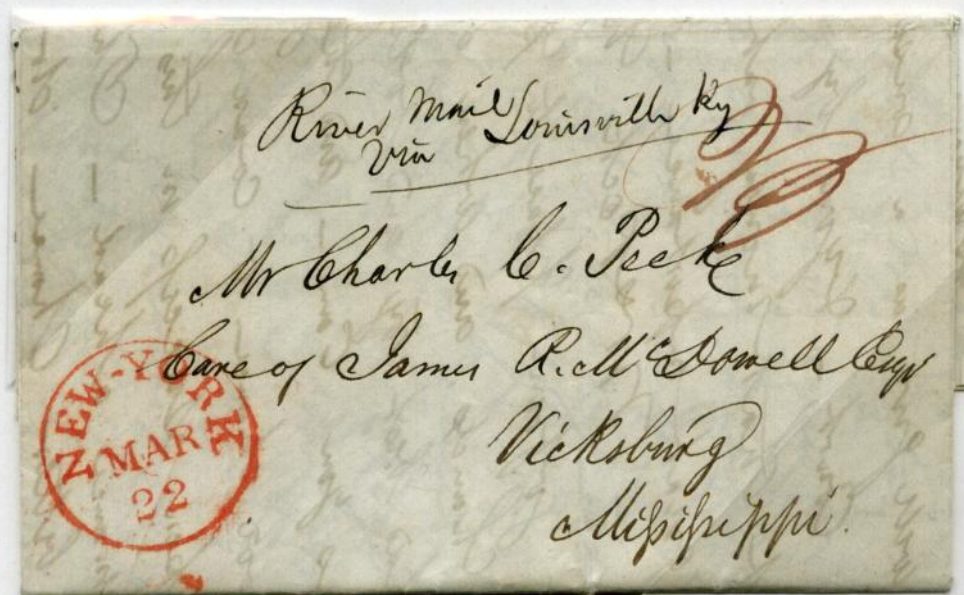 River Mail
via Louisville Ky
Mr Charles C. Peck
Care of James R. McDowell Esqr
Vicksburg
Missisippi.
NEW-YORK
MAR
22